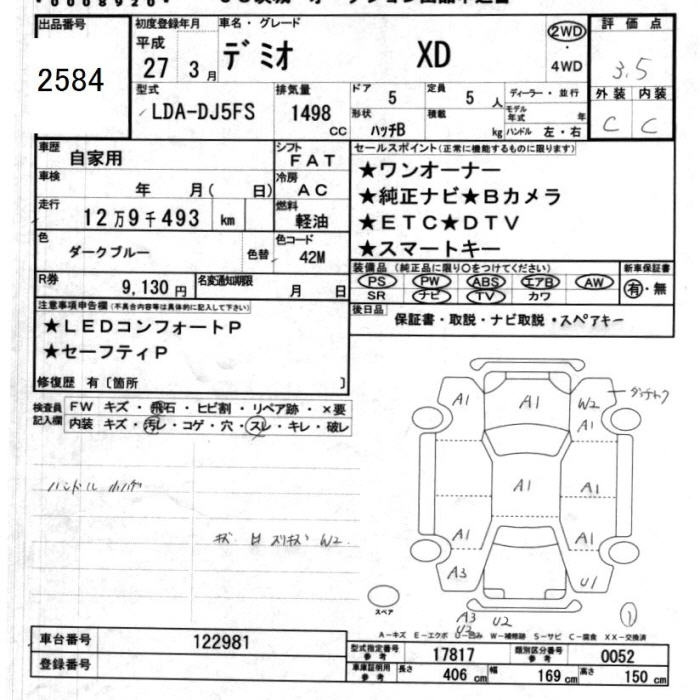 出品番号 初度登録年月 車名・グレード 2WD 評価点
2584 平成 27 3月 デミオ XD ・ 4WD 3.5
型式 排気量 ドア 定員 ディーラー・並行 外装 内装
LDA-DJ5FS 1498 CC 5 5人 モデル年式 年 C C
形状 ハッチB 積載 kg ハンドル 左・右
車歴 自家用 シフト FAT セールスポイント(正常に機能するものに限ります)
車検 年 月( 日) 冷房 AC ★ワンオーナー
走行 12万9千493 km 燃料 軽油 ★純正ナビ★Bカメラ
★ETC★DTV
色 ダークブルー 色替 色コード 42M ★スマートキー
R券 9,130円 名変通知期限 月 日 装備品(純正品に限り○をつけてください) 新車保証書
PS PW ABS エアB AW 有・無
SR ナビ TV カワ
注意事項申告欄(不具合内容等は具体的に記入して下さい) 後日品 保証書・取説・ナビ取説・スペアキー
★LEDコンフォートP
★セーフティP
修復歴 有〔箇所 〕
検査員記入欄 FW キズ・飛石・ヒビ割・リペア跡・×要
内装 キズ・汚レ・コゲ・穴・スレ・キレ・破レ
A1 A1 W2
A1
ハンドル
A1 A1
W2
A1 A1
A3 U1
スペア
A3 U2 1
U2
A-キズ E-エクボ U-凹み W-補修跡 S-サビ C-腐食 XX-交換済
車台番号 122981 型式指定番号参考 17817 類別区分番号参考 0052
登録番号 車庫証明用参考 長さ 406cm 幅 169cm 高さ 150cm